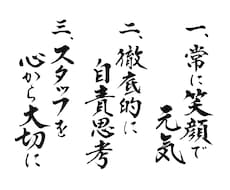 一、常に笑顔で
元気
二、徹底的に
自責思考
三、スタッフを
心から大切に